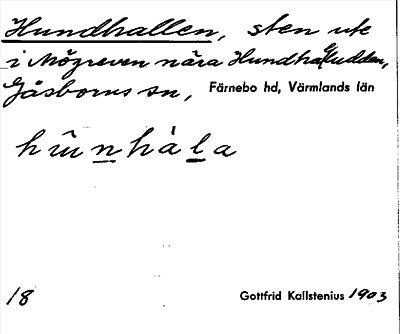 Hundhallen, sten ute
i Mögreven nära Hundhalludden,
Gåsborns sn, Färnebo hd, Värmlands län
hu̇̂n̲hàl̲a
18 Gottfrid Kallstenius 1903